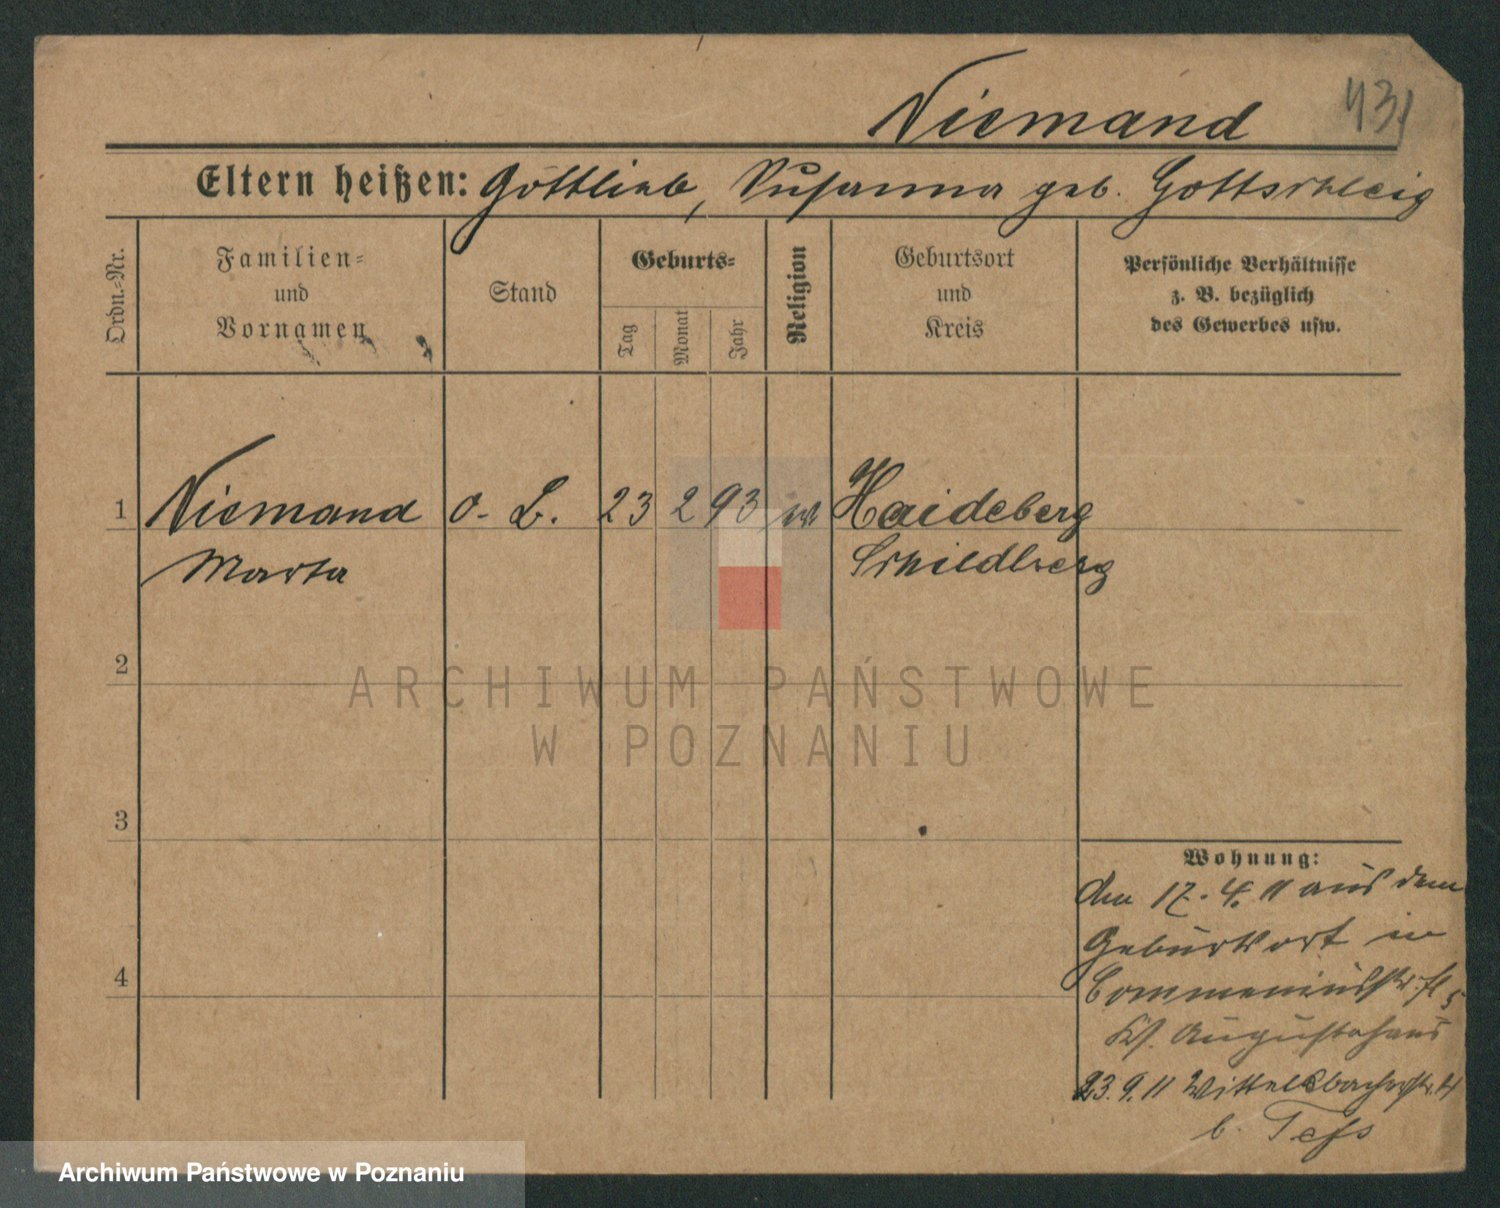 Niemand
Eltern heißen: Gottlieb, Susanna geb. Gottschleig
Ordn.-Nr.
Familien- und Vornamen
Stand
Geburts-
Tag
Monat
Jahr
Religion
Geburtsort und Kreis
Persönliche Verhältnisse
z. B. bezüglich
des Gewerbes usw.
1 Niemand o. L. 23 2 93 ev Haideberg
Marta Schildberg
2
3
4
Wohnung:
den 17. 4. 11 aus dem
Geburtsort in
Commeniusstr.
Augustahaus
23. 9. 11 Wittelsbacherstr. 4
b. Tess
ARCHIWUM PAŃSTWOWE
W POZNANIU
Archiwum Państwowe w Poznaniu